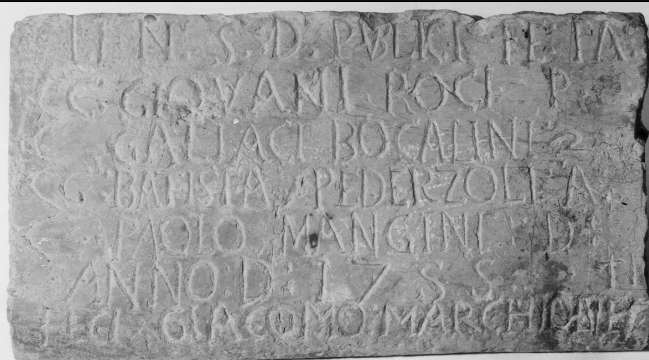 II N. S. D. PVBLICI FE. FA
CC GIOVANI ROCI P.
GALIACI BOCALINI
CG BATISTA PEDERZOLI A.
PAOLO MANGINI D
ANNO D: 1755 II
FECI GIACOMO MARCHIO